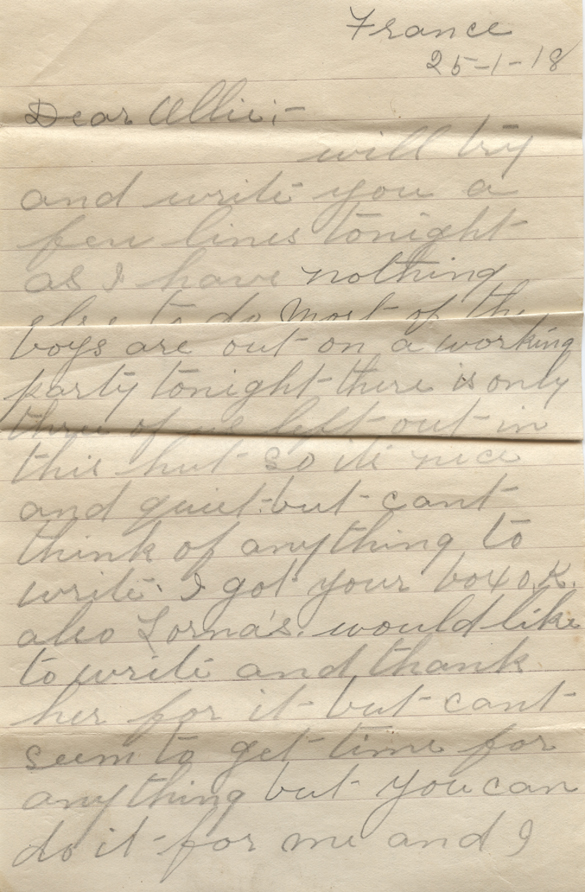 France
25-1-18
Dear Ollie;-
will try
and write you a
few lines tonight
as I have nothing
else to do most of the
boys are out on a working
party tonight there is only
three of us left out in
this hut so its nice
and quiet but cant
think of anything to
write. I got your box o.K.
also Lorna's. would like
to write and thank
her for it but cant
seem to get time for
anything but you can
do it for me and I